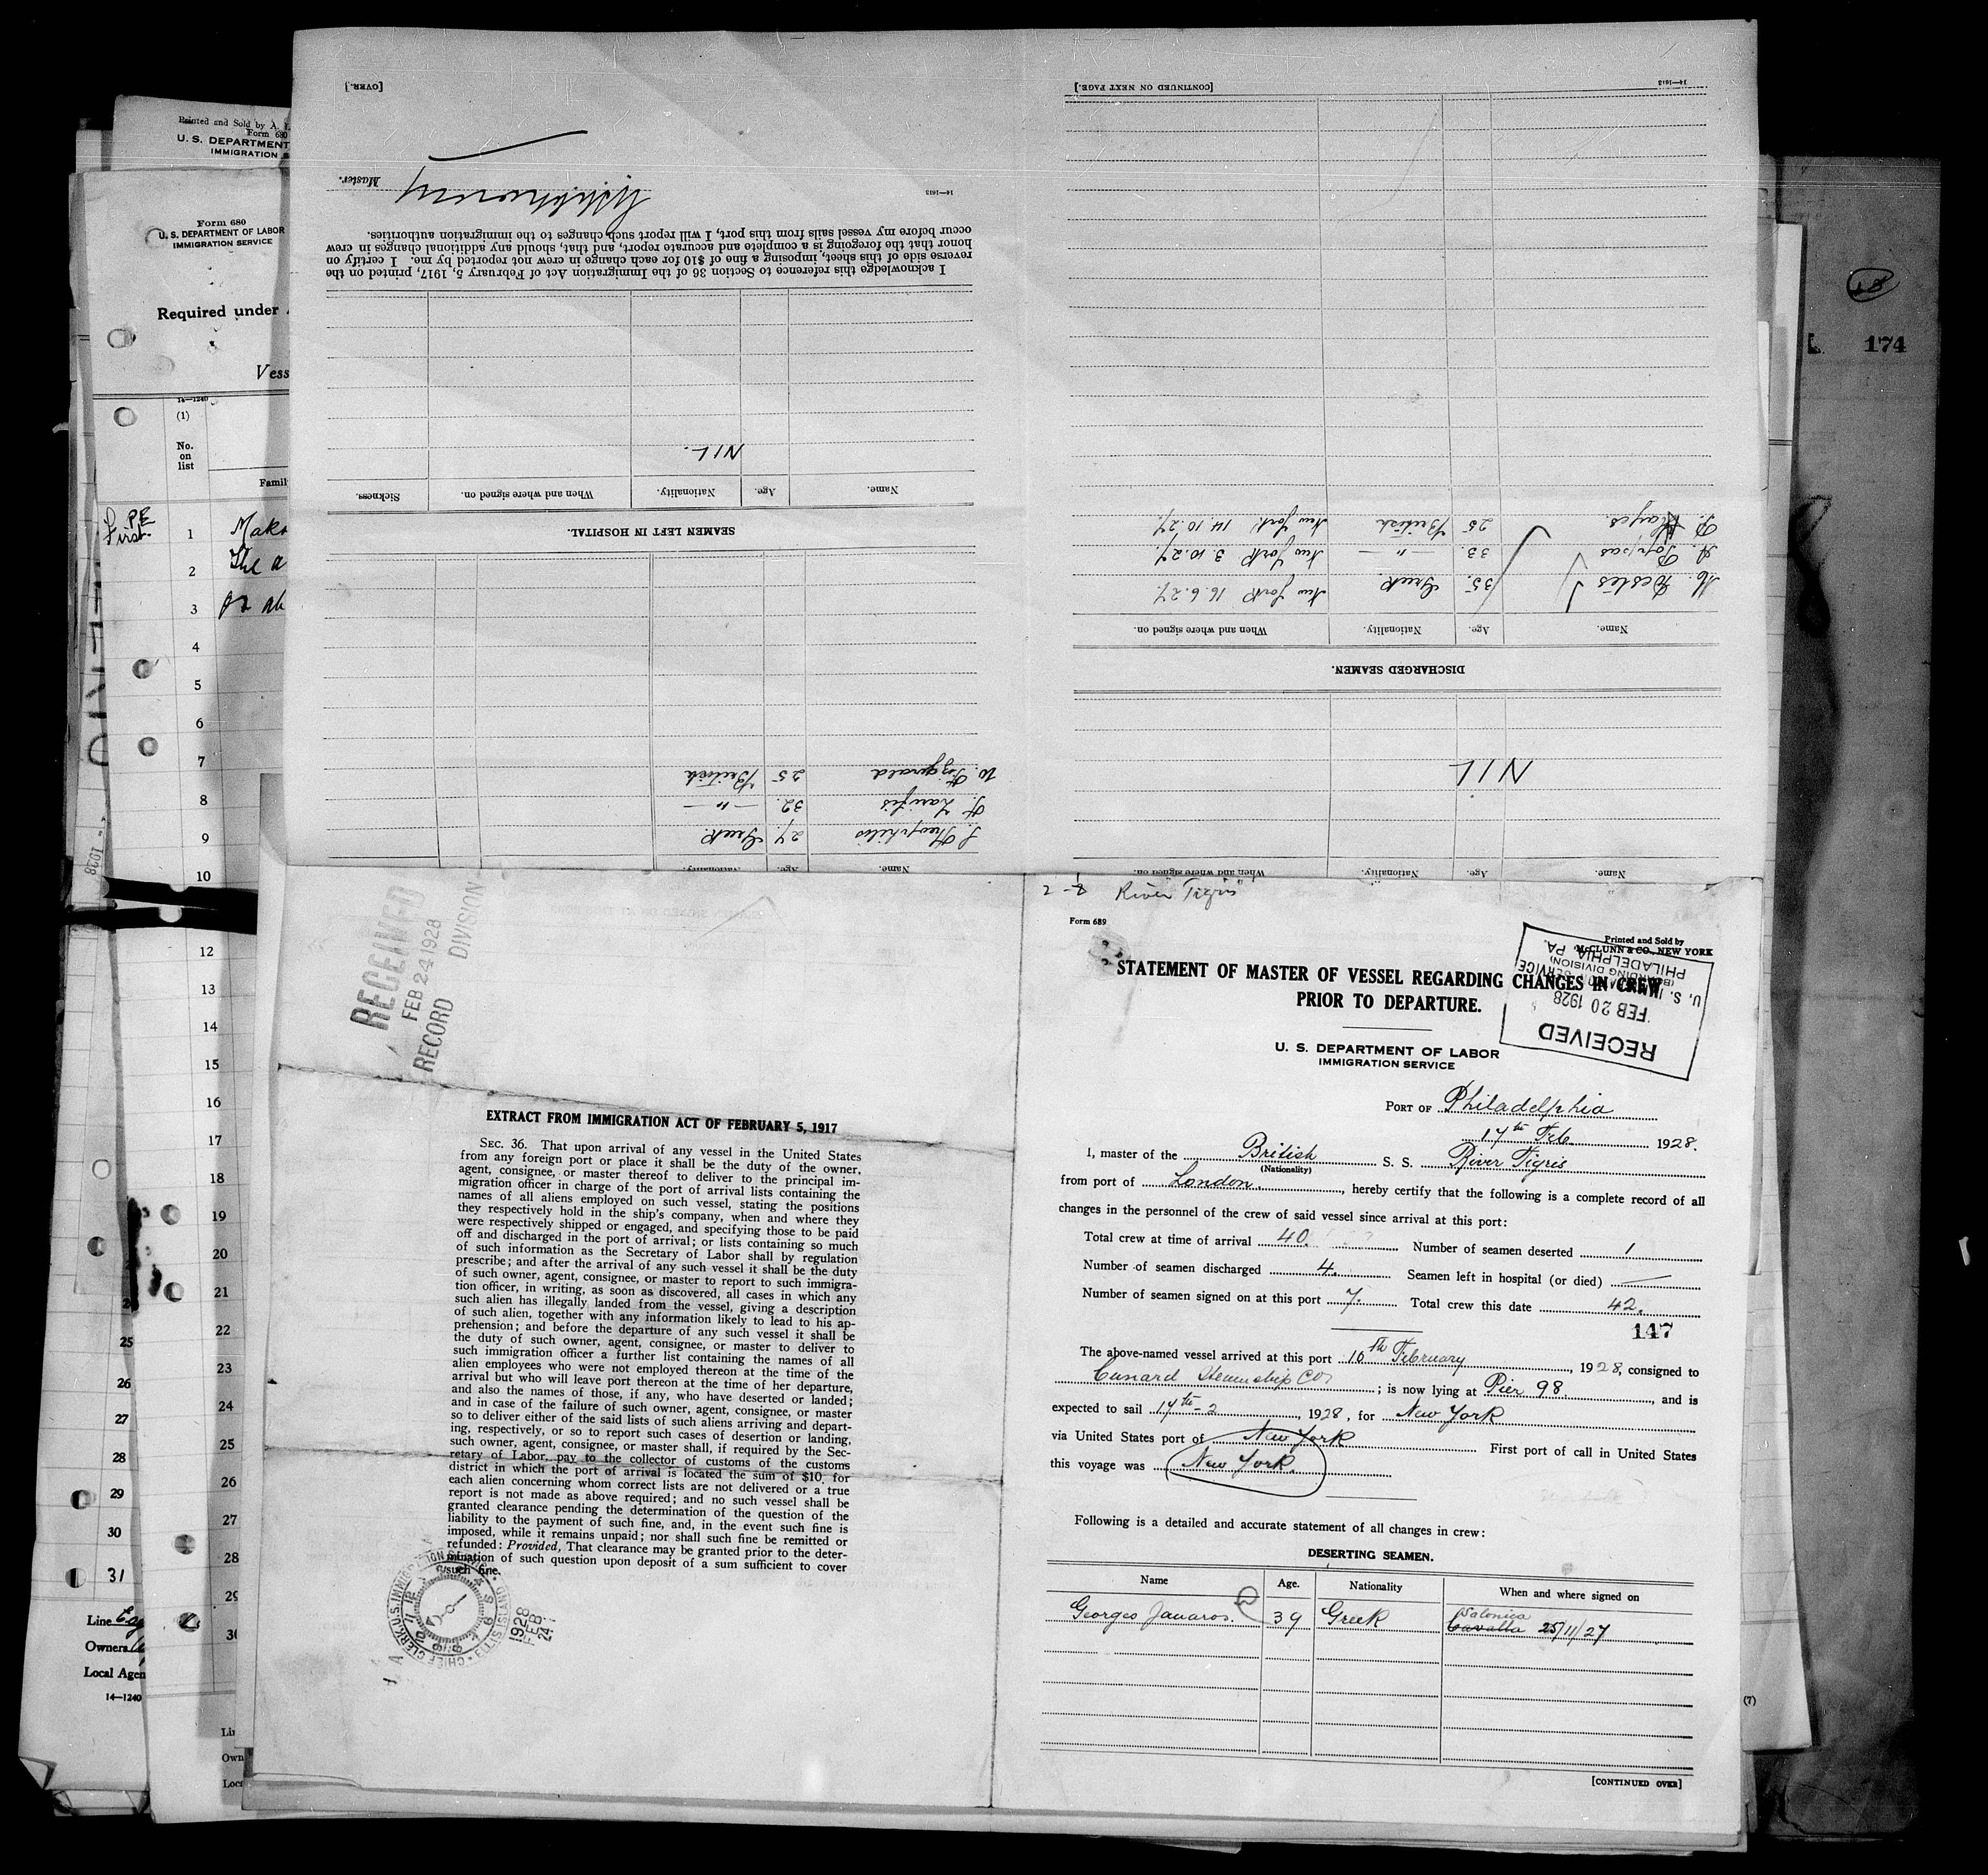 Printed and Sold by A. L.
Form 680
U. S. DEPARTMENT
IMMIGRATION S
Form 680
U. S. DEPARTMENT OF LABOR
IMMIGRATION SERVICE
Required under
Vess
14—1240
(1)
No.
on
list
Famil
P.E
First.
1
2
The a
3
or ab
4
5
6
7
8
9
10
12
13
14
15
16
17
18
19
20
21
22
23
24
25
26
27
28
29
25
26
27
28
29
30
31
Line
Owners
Local Agen
14—1240
Own
174
(7)
[CONTINUED ON NEXT PAGE.]
14—1613
Name. Age. Nationality. When and where signed on.
NIL
DISCHARGED SEAMEN.
Name. Age. Nationality. When and where signed on.
35. Greek. New York 16.6.27.
33. — " — New York 3.10.27.
P. Hayes. 25 British New York 14.10.27.
[OVER.]
Name. Age. Nationality.
27. Greek.
32. — " —
W. Fitzgerald 25 British
SEAMEN LEFT IN HOSPITAL.
Name. Age. Nationality. When and where signed on. Sickness.
NIL.
I acknowledge this reference to Section 36 of the Immigration Act of February 5, 1917, printed on the
reverse side of this sheet, imposing a fine of $10 for each change in crew not reported by me. I certify on
honor that the foregoing is a complete and accurate report, and that, should any additional changes in crew
occur before my vessel sails from this port, I will report such changes to the immigration authorities.
Master.
14—1613
RECEIVED
FEB 24 1928
RECORD DIVISION
EXTRACT FROM IMMIGRATION ACT OF FEBRUARY 5, 1917
SEC. 36. That upon arrival of any vessel in the United States
from any foreign port or place it shall be the duty of the owner,
agent, consignee, or master thereof to deliver to the principal im-
migration officer in charge of the port of arrival lists containing the
names of all aliens employed on such vessel, stating the positions
they respectively hold in the ship's company, when and where they
were respectively shipped or engaged, and specifying those to be paid
off and discharged in the port of arrival; or lists containing so much
of such information as the Secretary of Labor shall by regulation
prescribe; and after the arrival of any such vessel it shall be the duty
of such owner, agent, consignee, or master to report to such immigra-
tion officer, in writing, as soon as discovered, all cases in which any
such alien has illegally landed from the vessel, giving a description
of such alien, together with any information likely to lead to his ap-
prehension; and before the departure of any such vessel it shall be
the duty of such owner, agent, consignee, or master to deliver to
such immigration officer a further list containing the names of all
alien employees who were not employed thereon at the time of the
arrival but who will leave port thereon at the time of her departure,
and also the names of those, if any, who have deserted or landed;
and in case of the failure of such owner, agent, consignee, or master
so to deliver either of the said lists of such aliens arriving and depart-
ing, respectively, or so to report such cases of desertion or landing,
such owner, agent, consignee, or master shall, if required by the Sec-
retary of Labor, pay to the collector of customs of the customs
district in which the port of arrival is located the sum of $10 for
each alien concerning whom correct lists are not delivered or a true
report is not made as above required; and no such vessel shall be
granted clearance pending the determination of the question of the
liability to the payment of such fine, and, in the event such fine is
imposed, while it remains unpaid; nor shall such fine be remitted or
refunded: Provided, That clearance may be granted prior to the deter-
mination of such question upon deposit of a sum sufficient to cover
such fine.
1928
FEB
24
River Tigris
Form 689
Printed and Sold by
McCLUNN & CO., NEW YORK
STATEMENT OF MASTER OF VESSEL REGARDING CHANGES IN CREW
PRIOR TO DEPARTURE.
RECEIVED
FEB 20 1928
PHILADELPHIA, PA.
U. S. DEPARTMENT OF LABOR
IMMIGRATION SERVICE
PORT OF Philadelphia
17th Feb 1928.
I, master of the British S. S. River Tigris
(Nationality)
from port of London., hereby certify that the following is a complete record of all
changes in the personnel of the crew of said vessel since arrival at this port:
Total crew at time of arrival 40. Number of seamen deserted 1
Number of seamen discharged 4. Seamen left in hospital (or died) —
Number of seamen signed on at this port 7. Total crew this date 42.
147
The above-named vessel arrived at this port 16th February, 1928, consigned to
Cunard Steamship Co; is now lying at Pier 98., and is
expected to sail 17th-2, 1928, for New York
via United States port of New York First port of call in United States
this voyage was New York.
Following is a detailed and accurate statement of all changes in crew:
DESERTING SEAMEN.
Name Age. Nationality When and where signed on
Salonica
Georges Janaros. 39 Greek Cavalla 25/11/27
[CONTINUED OVER]